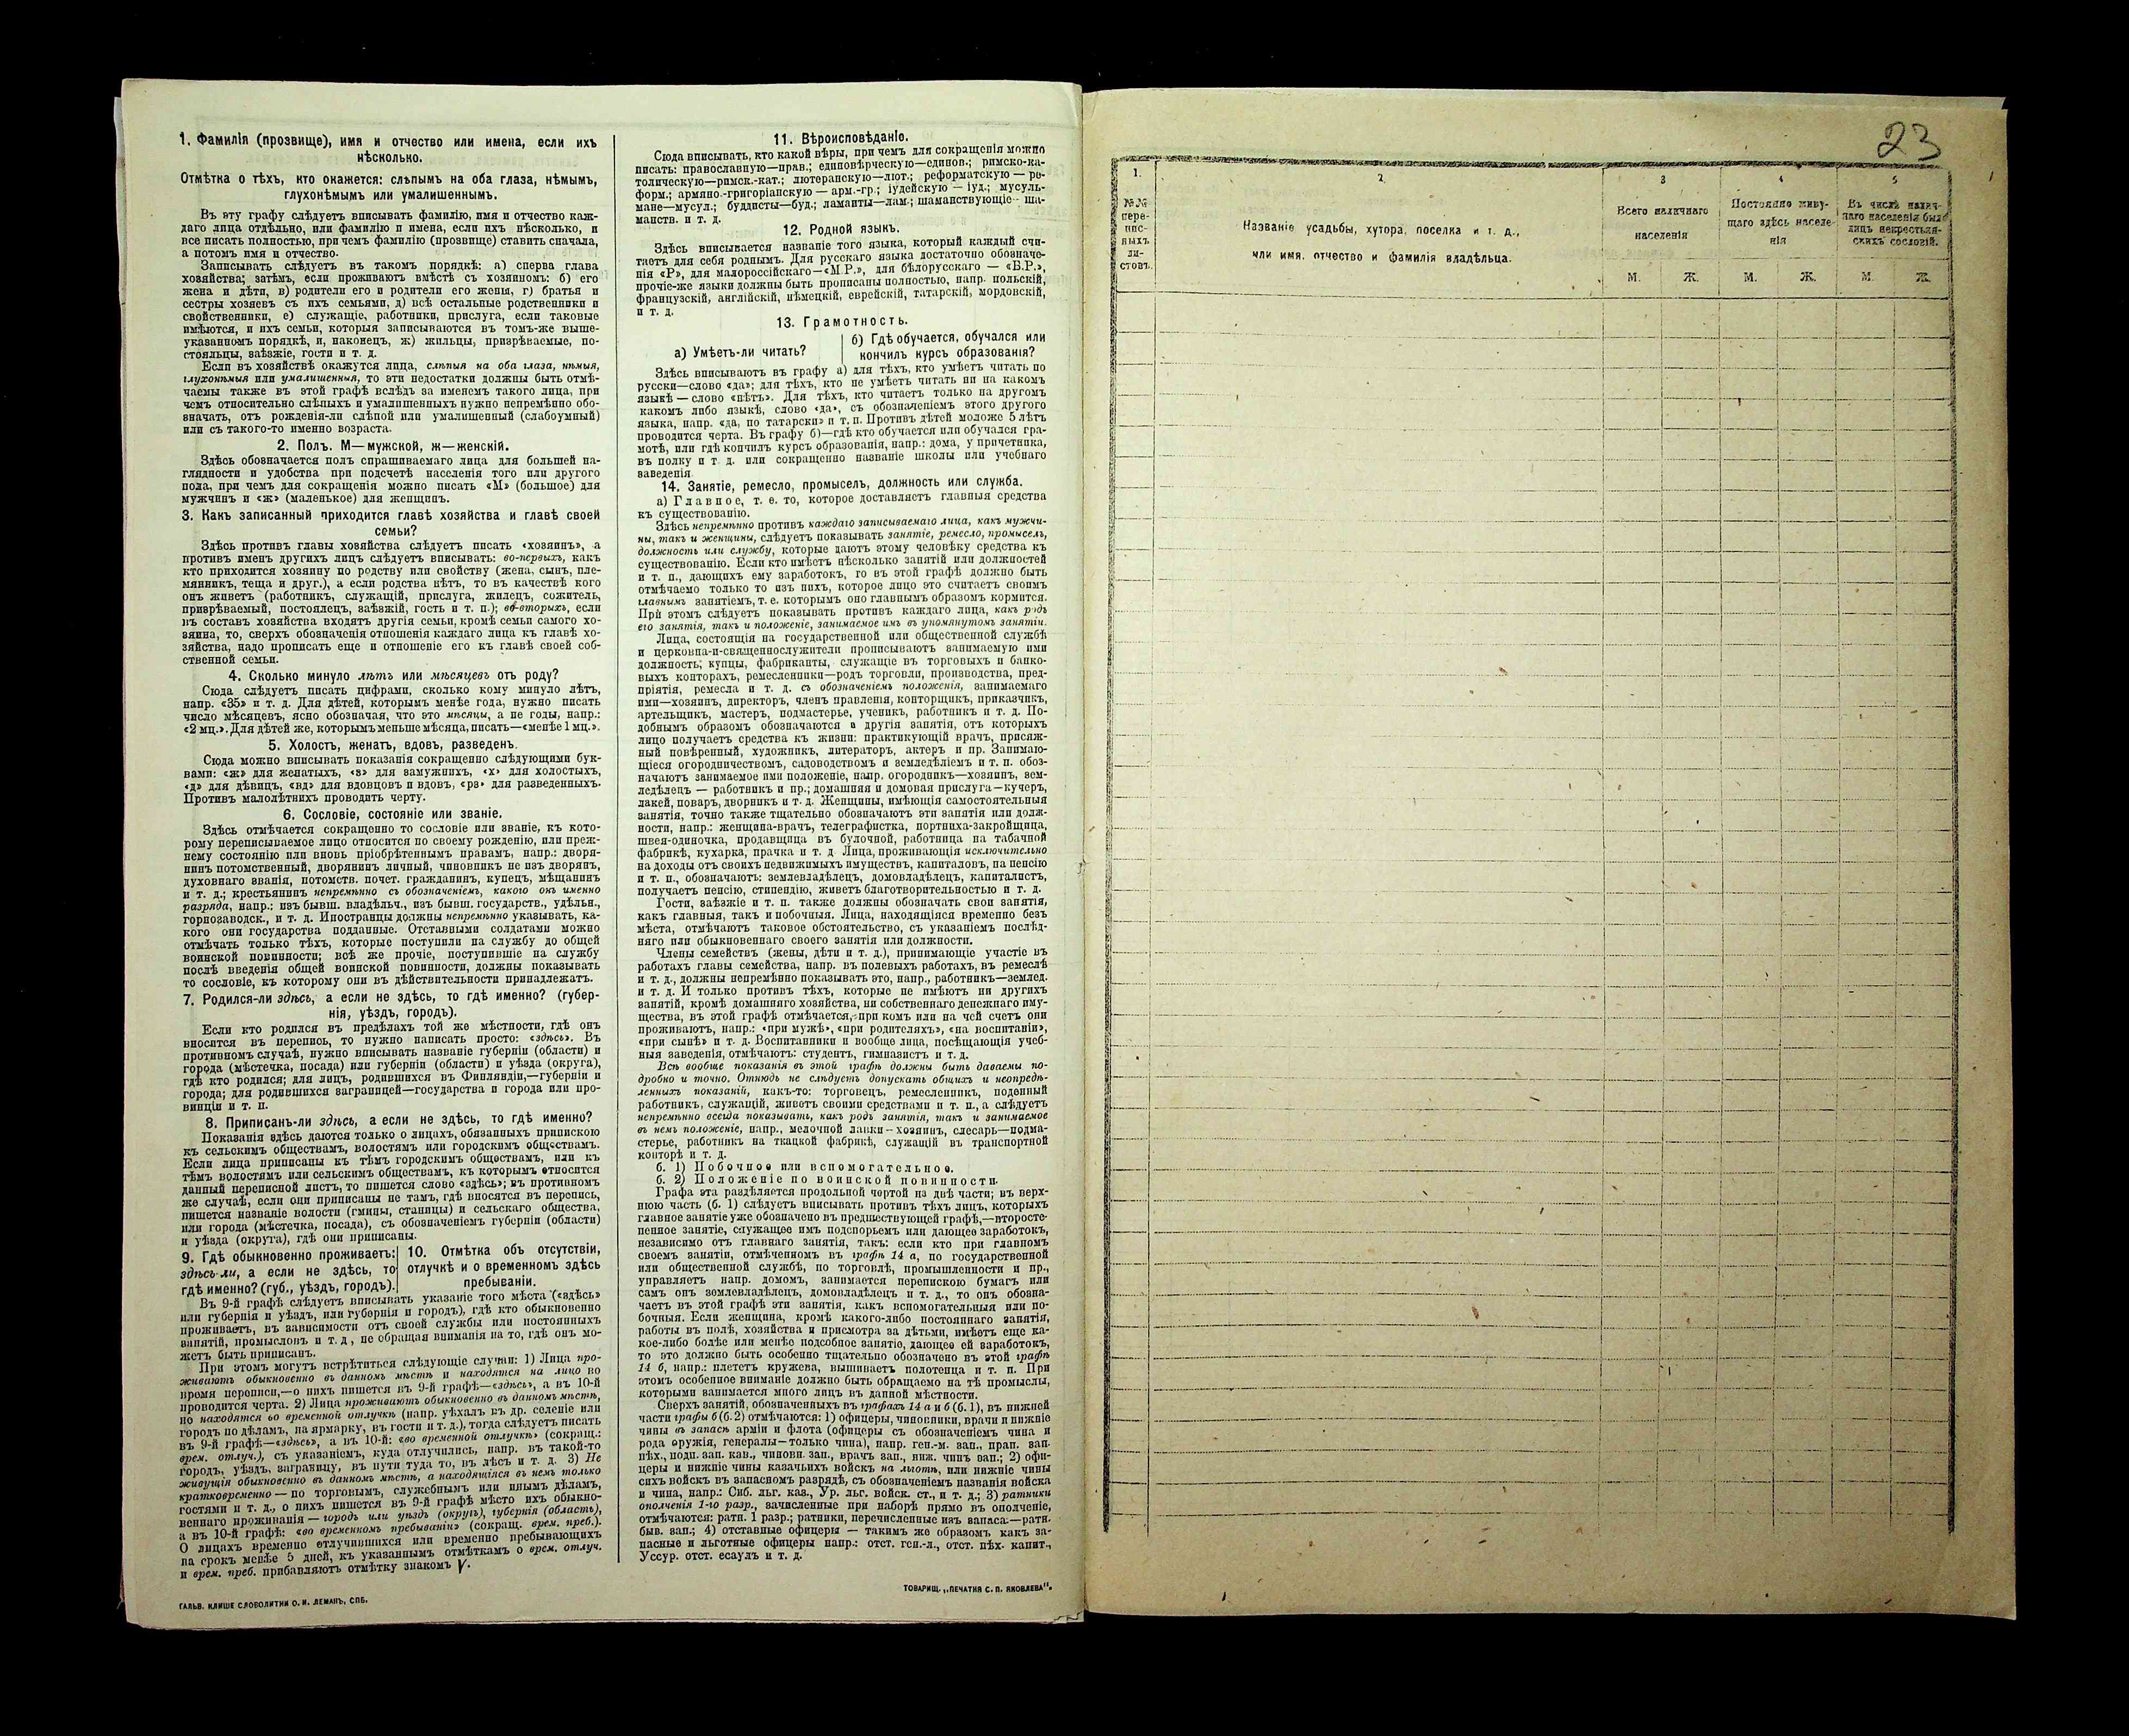 1. Фамилія (прозвище), имя и отчество или имена, если ихъ
нѣсколько.
Отмѣтка о тѣхъ, кто окажется: слѣпымъ на оба глаза, нѣмымъ,
глухонѣмымъ или умалишеннымъ.
Въ эту графу слѣдуетъ вписывать фамилію, имя и отчество каж-
даго лица отдѣльно, или фамилію и имена, если ихъ нѣсколько, и
все писать полностью, при чемъ фамилію (прозвище) ставить сначала,
а потомъ имя и отчество.
Записывать слѣдуетъ въ такомъ порядкѣ: а) сперва глава
хозяйства; затѣмъ, если проживаютъ вмѣстѣ съ хозяиномъ: б) его
жена и дѣти, в) родители его и родители его жены, г) братья и
сестры хозяевъ съ ихъ семьями, д) всѣ остальные родственники и
свойственники, е) служащіе, работники, прислуга, если таковые
имѣются, и ихъ семьи, которыя записываются въ томъ-же выше-
указанномъ порядкѣ, и, наконецъ, ж) жильцы, призрѣваемые, по-
стояльцы, заѣзжіе, гости и т. д.
Если въ хозяйствѣ окажутся лица, слѣпыя на оба глаза, нѣмыя,
глухонѣмыя или умалишенныя, то эти недостатки должны быть отмѣ-
чаемы также въ этой графѣ вслѣдъ за именемъ такого лица, при
чемъ относительно слѣпыхъ и умалишенныхъ нужно непремѣнно обо-
значать, отъ рожденія-ли слѣпой или умалишенный (слабоумный)
или съ такого-то именно возраста.
2. Полъ. М—мужской, ж—женскій.
Здѣсь обозначается полъ спрашиваемаго лица для большей на-
глядности и удобства при подсчетѣ населенія того или другого
пола, при чемъ для сокращенія можно писать «М» (большое) для
мужчинъ и «ж» (маленькое) для женщинъ.
3. Какъ записанный приходится главѣ хозяйства и главѣ своей
семьи?
Здѣсь противъ главы хозяйства слѣдуетъ писать «хозяинъ», а
противъ именъ другихъ лицъ слѣдуетъ вписывать: во-первыхъ, какъ
кто приходится хозяину по родству или свойству (жена, сынъ, пле-
мянникъ, теща и друг.), а если родства нѣтъ, то въ качествѣ кого
онъ живетъ (работникъ, служащій, прислуга, жилецъ, сожитель,
призрѣваемый, постоялецъ, заѣзжій, гость и т. п.); во-вторыхъ, если
въ составъ хозяйства входятъ другія семьи, кромѣ семьи самого хо-
зяина, то, сверхъ обозначенія отношенія каждаго лица къ главѣ хо-
зяйства, надо прописать еще и отношеніе его къ главѣ своей соб-
ственной семьи.
4. Сколько минуло лѣтъ или мѣсяцевъ отъ роду?
Сюда слѣдуетъ писать цифрами, сколько кому минуло лѣтъ,
напр. «35» и т. д. Для дѣтей, которымъ менѣе года, нужно писать
число мѣсяцевъ, ясно обозначая, что это мѣсяцы, а не годы, напр.:
«2 мц.». Для дѣтей же, которымъ меньше мѣсяца, писать—«менѣе 1 мц.».
5. Холостъ, женатъ, вдовъ, разведенъ.
Сюда можно вписывать показанія сокращенно слѣдующими бук-
вами: «ж» для женатыхъ, «з» для замужнихъ, «х» для холостыхъ,
«д» для дѣвицъ, «вд» для вдовцовъ и вдовъ, «рз» для разведенныхъ.
Противъ малолѣтнихъ проводить черту.
6. Сословіе, состояніе или званіе.
Здѣсь отмѣчается сокращенно то сословіе или званіе, къ кото-
рому переписываемое лицо относится по своему рожденію, или преж-
нему состоянію или вновь пріобрѣтеннымъ правамъ, напр.: дворя-
нинъ потомственный, дворянинъ личный, чиновникъ не изъ дворянъ,
духовнаго званія, потомств. почет. гражданинъ, купецъ, мѣщанинъ
и т. д.; крестьянинъ непремѣнно съ обозначеніемъ, какого онъ именно
разряда, напр.: изъ бывш. владѣльч., изъ бывш. государств., удѣльн.,
горнозаводск., и т. д. Иностранцы должны непремѣнно указывать, ка-
кого они государства подданные. Отставными солдатами можно
отмѣчать только тѣхъ, которые поступили на службу до общей
воинской повинности; всѣ же прочіе, поступившіе на службу
послѣ введенія общей воинской повинности, должны показывать
то сословіе, къ которому они въ дѣйствительности принадлежатъ.
7. Родился-ли здѣсь, а если не здѣсь, то гдѣ именно? (губер-
нія, уѣздъ, городъ).
Если кто родился въ предѣлахъ той же мѣстности, гдѣ онъ
вносится въ перепись, то нужно написать просто: «здѣсь». Въ
противномъ случаѣ, нужно вписывать названіе губерніи (области) и
города (мѣстечка, посада) или губерніи (области) и уѣзда (округа),
гдѣ кто родился; для лицъ, родившихся въ Финляндіи,—губерніи и
города; для родившихся заграницей—государства и города или про-
винціи и т. п.
8. Приписанъ-ли здѣсь, а если не здѣсь, то гдѣ именно?
Показанія здѣсь даются только о лицахъ, обязанныхъ припискою
къ сельскимъ обществамъ, волостямъ или городскимъ обществамъ.
Если лица приписаны къ тѣмъ городскимъ обществамъ, или къ
тѣмъ волостямъ или сельскимъ обществамъ, къ которымъ относится
данный переписной листъ, то пишется слово «здѣсь»; въ противномъ
же случаѣ, если они приписаны не тамъ, гдѣ вносятся въ перепись,
пишется названіе волости (гмины, станицы) и сельскаго общества,
или города (мѣстечка, посада), съ обозначеніемъ губерніи (области)
и уѣзда (округа), гдѣ они приписаны.
9. Гдѣ обыкновенно проживаетъ:
здѣсь-ли, а если не здѣсь, то
гдѣ именно? (губ., уѣздъ, городъ).
10. Отмѣтка объ отсутствіи,
отлучкѣ и о временномъ здѣсь
пребываніи.
Въ 9-й графѣ слѣдуетъ вписывать указаніе того мѣста («здѣсь»
или губернія и уѣздъ, или губернія и городъ), гдѣ кто обыкновенно
проживаетъ, въ зависимости отъ своей службы или постоянныхъ
занятій, промысловъ и т. д., не обращая вниманія на то, гдѣ онъ мо-
жетъ быть приписанъ.
При этомъ могутъ встрѣтиться слѣдующіе случаи: 1) Лица про-
живаютъ обыкновенно въ данномъ мѣстѣ и находятся на лицо во
время переписи,—о нихъ пишется въ 9-й графѣ—«здѣсь», а въ 10-й
проводится черта. 2) Лица проживаютъ обыкновенно въ данномъ мѣстѣ,
но находятся во временной отлучкѣ (напр. уѣхалъ въ др. селеніе или
городъ по дѣламъ, на ярмарку, въ гости и т. д.), тогда слѣдуетъ писать
въ 9-й графѣ—«здѣсь», а въ 10-й: «во временной отлучкѣ» (сокращ.:
врем. отлуч.), съ указаніемъ, куда отлучились, напр. въ такой-то
городъ, уѣздъ, заграницу, въ пути туда то, въ лѣсъ и т. д. 3) Не
живущія обыкновенно въ данномъ мѣстѣ, а находящіяся въ немъ только
кратковременно — по торговымъ, служебнымъ или инымъ дѣламъ,
гостями и т. д., о нихъ пишется въ 9-й графѣ мѣсто ихъ обыкно-
веннаго проживанія — городъ или уѣздъ (округъ), губернія (область),
а въ 10-й графѣ: «во временномъ пребываніи» (сокращ. врем. преб.).
О лицахъ временно отлучившихся или временно пребывающихъ
на срокъ менѣе 5 дней, къ указаннымъ отмѣткамъ о врем. отлуч.
и врем. преб. прибавляютъ отмѣтку знакомъ V.
ГАЛЬВ. КЛИШЕ СЛОВОЛИТНИ О. И. ЛЕМАНЪ, СПБ.
11. Вѣроисповѣданіе.
Сюда вписывать, кто какой вѣры, при чемъ для сокращенія можно
писать: православную—прав.; единовѣрческую—единов.; римско-ка-
толическую—римск.-кат.; лютеранскую—лют.; реформатскую — ре-
форм.; армяно.-григоріанскую — арм.-гр.; іудейскую — іуд.; мусуль-
мане—мусул.; буддисты—буд.; ламаиты—лам.; шаманствующіе — ша-
манств. и т. д.
12. Родной языкъ.
Здѣсь вписывается названіе того языка, который каждый счи-
таетъ для себя роднымъ. Для русскаго языка достаточно обозначе-
нія «Р», для малороссійскаго—«М.Р.», для бѣлорусскаго — «Б.Р.»,
прочіе-же языки должны быть прописаны полностью, напр. польскій,
французскій, англійскій, нѣмецкій, еврейскій, татарскій, мордовскій,
и т. д.
13. Грамотность.
а) Умѣетъ-ли читать?
б) Гдѣ обучается, обучался или
кончилъ курсъ образованія?
Здѣсь вписываютъ въ графу а) для тѣхъ, кто умѣетъ читать по
русски—слово «да»; для тѣхъ, кто не умѣетъ читать ни на какомъ
языкѣ — слово «нѣтъ». Для тѣхъ, кто читаетъ только на другомъ
какомъ либо языкѣ, слово «да», съ обозначеніемъ этого другого
языка, напр. «да, по татарски» и т. п. Противъ дѣтей моложе 5 лѣтъ
проводится черта. Въ графу б)—гдѣ кто обучается или обучался гра-
мотѣ, или гдѣ кончилъ курсъ образованія, напр.: дома, у причетника,
въ полку и т. д. или сокращенно названіе школы или учебнаго
заведенія.
14. Занятіе, ремесло, промыселъ, должность или служба.
а) Главное, т. е. то, которое доставляетъ главныя средства
къ существованію.
Здѣсь непремѣнно противъ каждаго записываемаго лица, какъ мужчи-
ны, такъ и женщины, слѣдуетъ показывать занятіе, ремесло, промыселъ,
должность или службу, которые даютъ этому человѣку средства къ
существованію. Если кто имѣетъ нѣсколько занятій или должностей
и т. п., дающихъ ему заработокъ, то въ этой графѣ должно быть
отмѣчаемо только то изъ нихъ, которое лицо это считаетъ своимъ
главнымъ занятіемъ, т. е. которымъ оно главнымъ образомъ кормится.
При этомъ слѣдуетъ показывать противъ каждаго лица, какъ родъ
его занятія, такъ и положеніе, занимаемое имъ въ упомянутомъ занятіи.
Лица, состоящія на государственной или общественной службѣ
и церковно-и-священнослужители прописываютъ занимаемую ими
должность; купцы, фабриканты, служащіе въ торговыхъ и банко-
выхъ конторахъ, ремесленники—родъ торговли, производства, пред-
пріятія, ремесла и т. д. съ обозначеніемъ положенія, занимаемаго
ими—хозяинъ, директоръ, членъ правленія, конторщикъ, приказчикъ,
артельщикъ, мастеръ, подмастерье, ученикъ, работникъ и т. д. По-
добнымъ образомъ обозначаются и другія занятія, отъ которыхъ
лицо получаетъ средства къ жизни: практикующій врачъ, присяж-
ный повѣренный, художникъ, литераторъ, актеръ и пр. Занимаю-
щіеся огородничествомъ, садоводствомъ и земледѣліемъ и т. п. обоз-
начаютъ занимаемое ими положеніе, напр. огородникъ—хозяинъ, зем-
ледѣлецъ — работникъ и пр.; домашняя и домовая прислуга—кучеръ,
лакей, поваръ, дворникъ и т. д. Женщины, имѣющія самостоятельныя
занятія, точно также тщательно обозначаютъ эти занятія или долж-
ности, напр.: женщина-врачъ, телеграфистка, портниха-закройщица,
швея-одиночка, продавщица въ булочной, работница на табачной
фабрикѣ, кухарка, прачка и т. д. Лица, проживающія исключительно
на доходы отъ своихъ недвижимыхъ имуществъ, капиталовъ, на пенсію
и т. п., обозначаютъ: землевладѣлецъ, домовладѣлецъ, капиталистъ,
получаетъ пенсію, стипендію, живетъ благотворительностью и т. д.
Гости, заѣзжіе и т. п. также должны обозначать свои занятія,
какъ главныя, такъ и побочныя. Лица, находящіяся временно безъ
мѣста, отмѣчаютъ таковое обстоятельство, съ указаніемъ послѣд-
няго или обыкновеннаго своего занятія или должности.
Члены семействъ (жены, дѣти и т. д.), принимающіе участіе въ
работахъ главы семейства, напр. въ полевыхъ работахъ, въ ремеслѣ
и т. д., должны непремѣнно показывать это, напр., работникъ—землед.
и т. д. И только противъ тѣхъ, которые не имѣютъ ни другихъ
занятій, кромѣ домашняго хозяйства, ни собственнаго денежнаго иму-
щества, въ этой графѣ отмѣчается, при комъ или на чей счетъ они
проживаютъ, напр.: «при мужѣ», «при родителяхъ», «на воспитаніи»,
«при сынѣ» и т. д. Воспитанники и вообще лица, посѣщающія учеб-
ныя заведенія, отмѣчаютъ: студентъ, гимназистъ и т. д.
Всѣ вообще показанія въ этой графѣ должны быть даваемы по-
дробно и точно. Отнюдь не слѣдуетъ допускать общихъ и неопредѣ-
ленныхъ показаній, какъ-то: торговецъ, ремесленникъ, поденный
работникъ, служащій, живетъ своими средствами и т. п., а слѣдуетъ
непремѣнно всегда показывать, какъ родъ занятія, такъ и занимаемое
въ немъ положеніе, напр., мелочной лавки—хозяинъ, слесарь—подма-
стерье, работникъ на ткацкой фабрикѣ, служащій въ транспортной
конторѣ и т. д.
б. 1) Побочное или вспомогательное.
б. 2) Положеніе по воинской повинности.
Графа эта раздѣляется продольной чертой на двѣ части; въ верх-
нюю часть (б. 1) слѣдуетъ вписывать противъ тѣхъ лицъ, которыхъ
главное занятіе уже обозначено въ предшествующей графѣ,—второсте-
пенное занятіе, служащее имъ подспорьемъ или дающее заработокъ,
независимо отъ главнаго занятія, такъ: если кто при главномъ
своемъ занятіи, отмѣченномъ въ графѣ 14 а, по государственной
или общественной службѣ, по торговлѣ, промышленности и пр.,
управляетъ напр. домомъ, занимается перепискою бумагъ или
самъ онъ землевладѣлецъ, домовладѣлецъ и т. д., то онъ обозна-
чаетъ въ этой графѣ эти занятія, какъ вспомогательныя или по-
бочныя. Если женщина, кромѣ какого-либо постояннаго занятія,
работы въ полѣ, хозяйства и присмотра за дѣтьми, имѣетъ еще ка-
кое-либо болѣе или менѣе подсобное занятіе, дающее ей заработокъ,
то это должно быть особенно тщательно обозначено въ этой графѣ
14 б, напр.: плететъ кружева, вышиваетъ полотенца и т. п. При
этомъ особенное вниманіе должно быть обращаемо на тѣ промыслы,
которыми занимается много лицъ въ данной мѣстности.
Сверхъ занятій, обозначенныхъ въ графахъ 14 а и б (б. 1), въ нижней
части графы б (б. 2) отмѣчаются: 1) офицеры, чиновники, врачи и нижніе
чины въ запасѣ арміи и флота (офицеры съ обозначеніемъ чина и
рода оружія, генералы—только чина), напр. ген.-м. зап., прап. зап.
пѣх., подп. зап. кав., чиновн. зап., врачъ зап., ниж. чинъ зап.; 2) офи-
церы и нижніе чины казачьихъ войскъ на льготѣ, или нижніе чины
сихъ войскъ въ запасномъ разрядѣ, съ обозначеніемъ названія войска
и чина, напр.: Сиб. льг. каз., Ур. льг. войск. ст., и т. д.; 3) ратники
ополченія 1-го разр., зачисленные при наборѣ прямо въ ополченіе,
отмѣчаются: ратн. 1 разр.; ратники, перечисленные изъ запаса:—ратн.
быв. зап.; 4) отставные офицеры — такимъ же образомъ какъ за-
пасные и льготные офицеры напр.: отст. ген.-л., отст. пѣх. капит.,
Уссур. отст. есаулъ и т. д.
ТОВАРИЩ. „ПЕЧАТНЯ С. П. ЯКОВЛЕВА".
23
1.
2
3
4
5
№№
пере-
пис-
ныхъ
ли-
стовъ.
Названіе усадьбы, хутора, поселка и т. д.,
или имя, отчество и фамилія владѣльца.
Всего наличнаго
населенія
Постоянно живу-
щаго здѣсь населе-
нія
Въ числѣ налич-
наго населенія было
лицъ некрестьян-
скихъ сословій.
М. Ж. М. Ж. М. Ж.